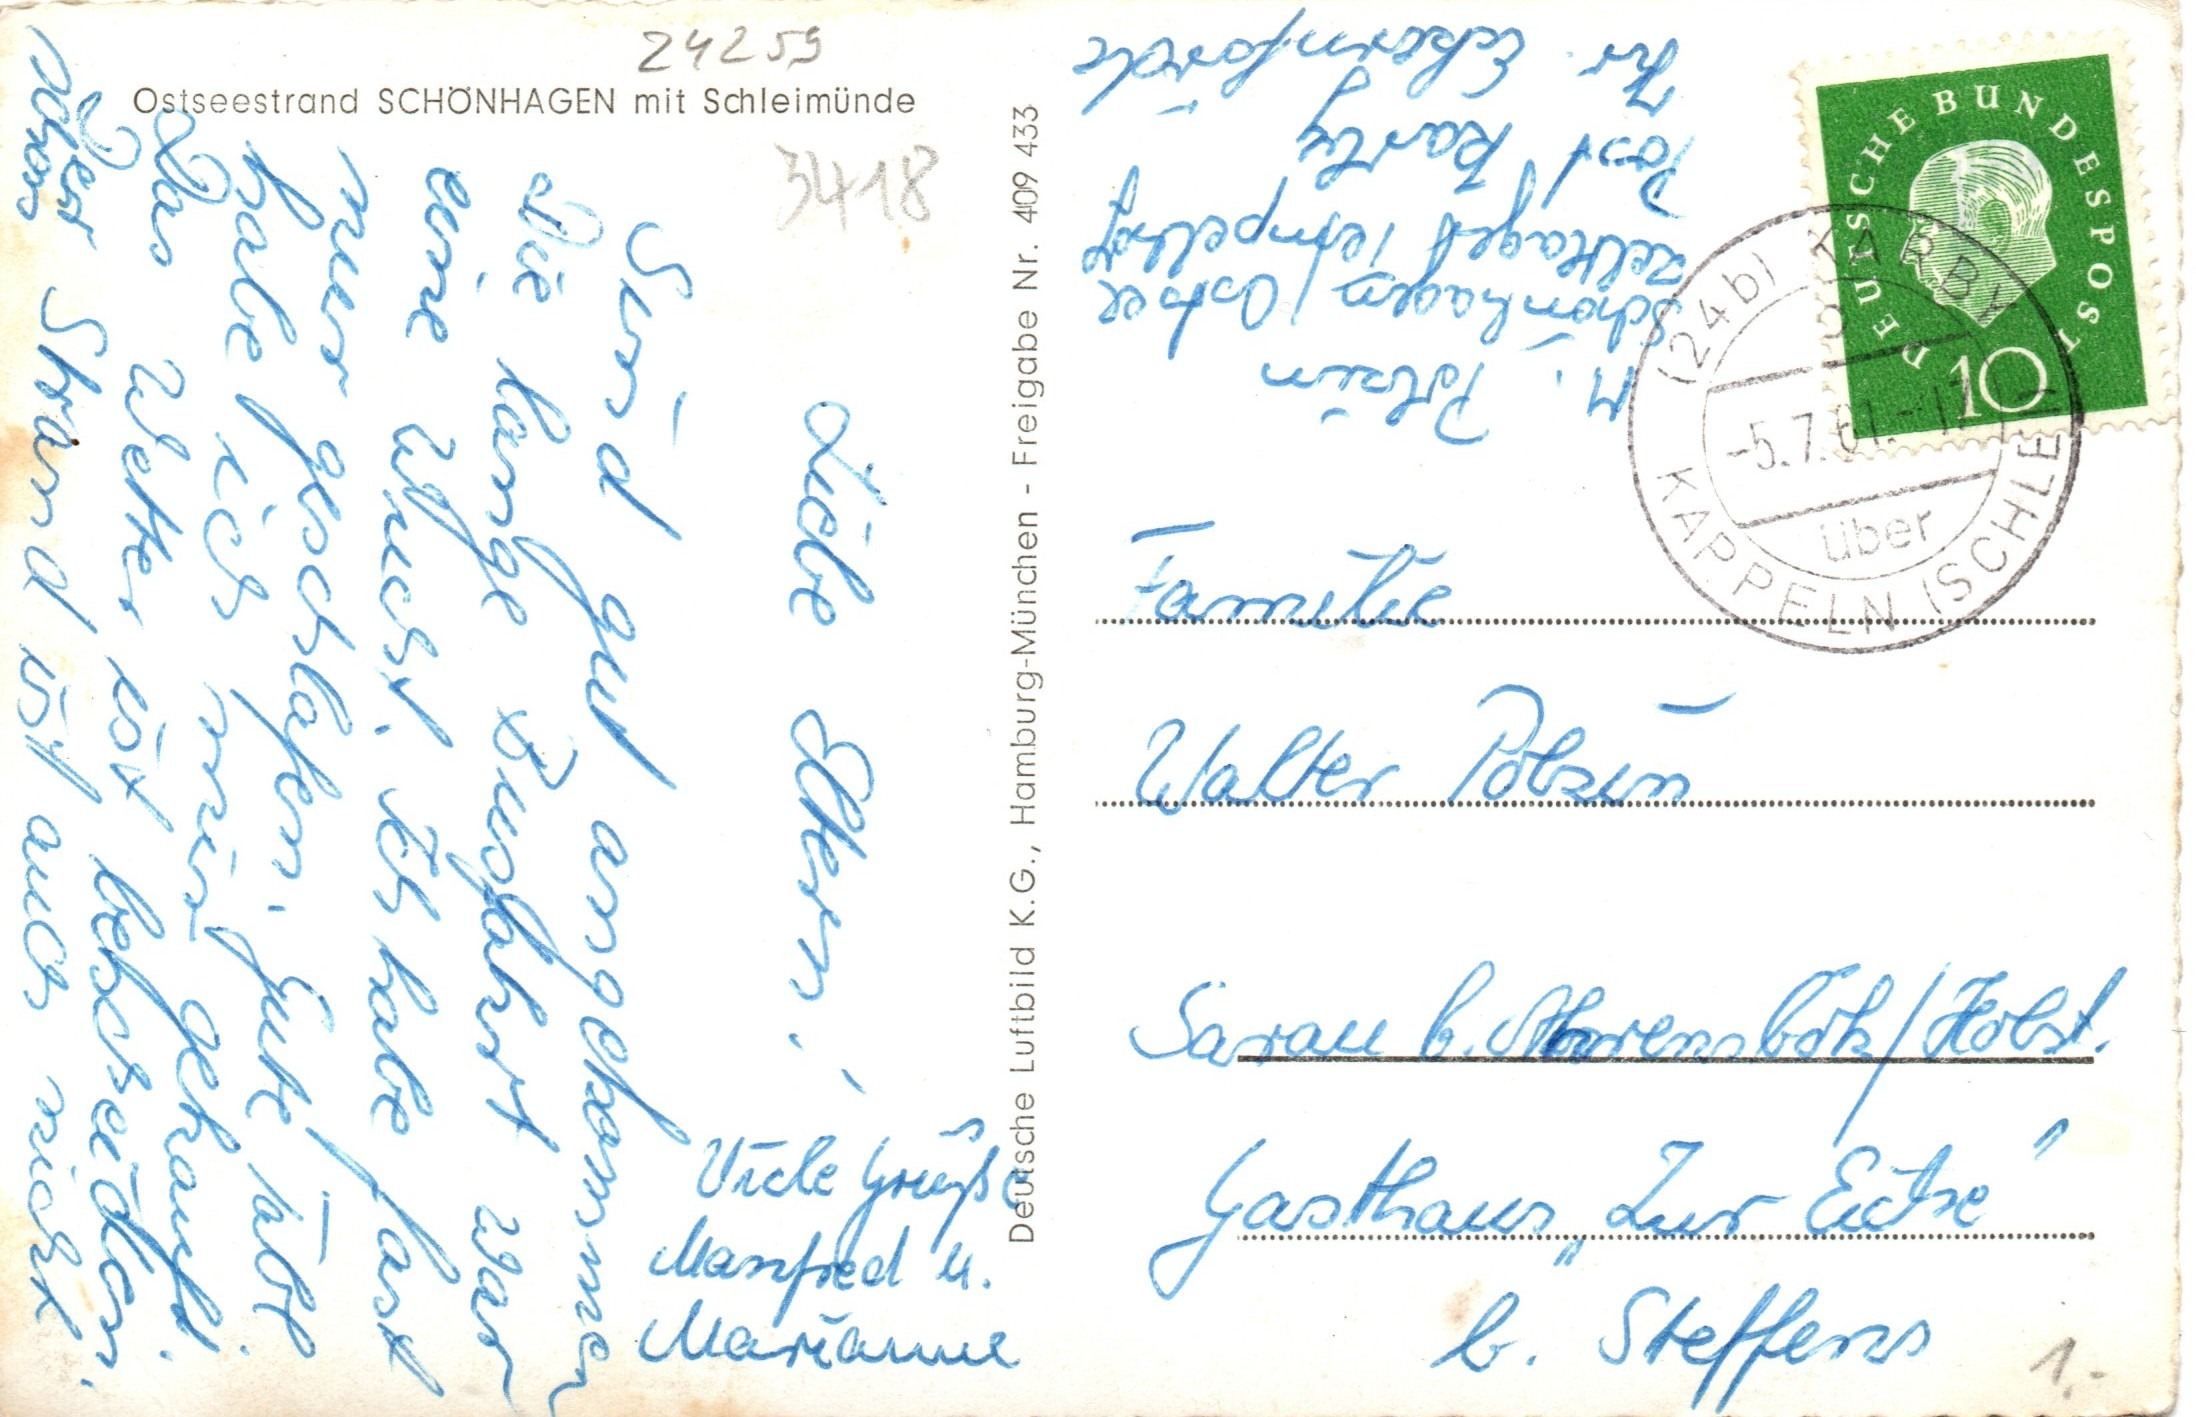 24259
Ostseestrand SCHÖNHAGEN mit Schleimünde
3418
Liebe Eltern,
Sind gut angekommen
Die lange Busfahrt war
eine Wucht. Ich habe fast
nur geschlafen. Gute Tabl.
habe ich mir gekauft.
Das Wetter ist bescheiden.
Der Strand ist auch nicht
schön
Viele Grüße
Manfred u.
Marianne
Deutsche Luftbild K.G., Hamburg-München - Freigabe Nr. 409 433
M. Polzin
Schönhagen/Ostsee
Zeltlager Tempelhof
Post Karby
Kr. Eckernförde
DEUTSCHE BUNDESPOST
10
(24b) KARBY
-5.7.61.-17
über
KAPPELN (SCHLE
Familie
Walter Polzin
Sarau b. Ahrensbök/Holst.
Gasthaus „Zur Eiche"
b. Steffens
1.-